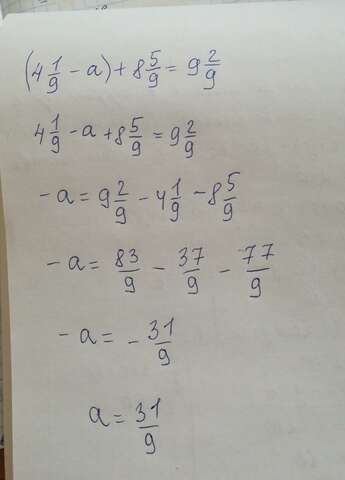 (4 1/9 - a) + 8 5/9 = 9 2/9
4 1/9 - a + 8 5/9 = 9 2/9
- a = 9 2/9 - 4 1/9 - 8 5/9
- a = 83/9 - 37/9 - 77/9
- a = - 31/9
a = 31/9